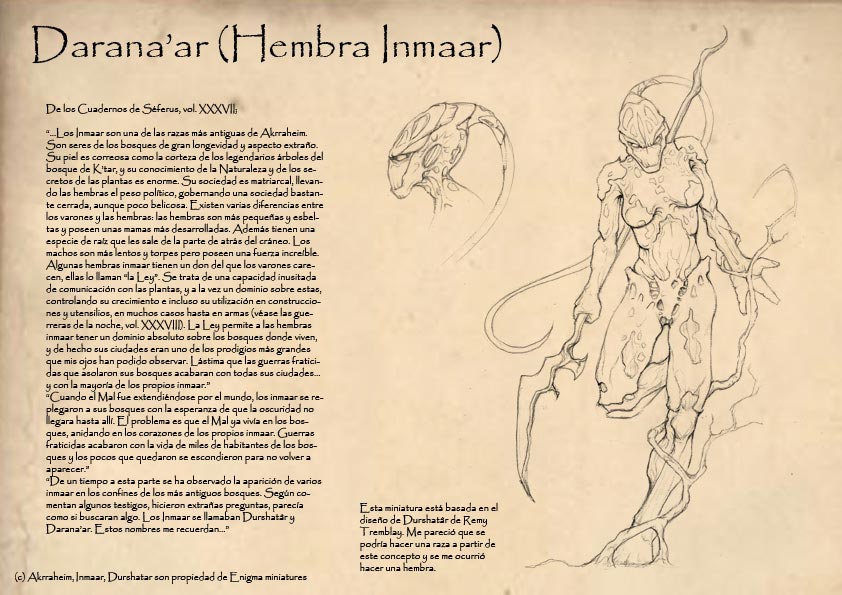 Darana'ar (Hembra Inmaar)
De los Cuadernos de Séferus, vol. XXXVII;
"...Los Inmaar son una de las razas más antiguas de Akrraheim.
Son seres de los bosques de gran longevidad y aspecto extraño.
Su piel es correosa como la corteza de los legendarios árboles del
bosque de K'tar, y su conocimiento de la Naturaleza y de los se-
cretos de las plantas es enorme. Su sociedad es matriarcal, llevan-
do las hembras el peso político, gobernando una sociedad bastan-
te cerrada, aunque poco belicosa. Existen varias diferencias entre
los varones y las hembras: las hembras son más pequeñas y esbel-
tas y poseen unas mamas más desarrolladas. Además tienen una
especie de raíz que les sale de la parte de atrás del cráneo. Los
machos son más lentos y torpes pero poseen una fuerza increíble.
Algunas hembras inmaar tienen un don del que los varones care-
cen, ellas lo llaman "la Ley". Se trata de una capacidad inusitada
de comunicación con las plantas, y a la vez un dominio sobre estas,
controlando su crecimiento e incluso su utilización en construccio-
nes y utensilios, en muchos casos hasta en armas (véase las gue-
rreras de la noche, vol. XXXVIII). La Ley permite a las hembras
inmaar tener un dominio absoluto sobre los bosques donde viven,
y de hecho sus ciudades eran uno de los prodigios más grandes
que mis ojos han podido observar. Lástima que las guerras fratici-
das que asolaron sus bosques acabaran con todas sus ciudades...
y con la mayoría de los propios inmaar."
"Cuando el Mal fue extendiéndose por el mundo, los inmaar se re-
plegaron a sus bosques con la esperanza de que la oscuridad no
llegara hasta allí. El problema es que el Mal ya vivía en los bos-
ques, anidando en los corazones de los propios inmaar. Guerras
fraticidas acabaron con la vida de miles de habitantes de los bos-
ques y los pocos que quedaron se escondieron para no volver a
aparecer."
"De un tiempo a esta parte se ha observado la aparición de varios
inmaar en los confines de los más antiguos bosques. Según co-
mentan algunos testigos, hicieron extrañas preguntas, parecía
como si buscaran algo. Los Inmaar se llamaban Durshatâr y
Darana'ar. Estos nombres me recuerdan..."
Esta miniatura está basada en el
diseño de Durshatâr de Remy
Tremblay. Me pareció que se
podría hacer una raza a partir de
este concepto y se me ocurrió
hacer una hembra.
(c) Akrraheim, Inmaar, Durshatar son propiedad de Enigma miniatures